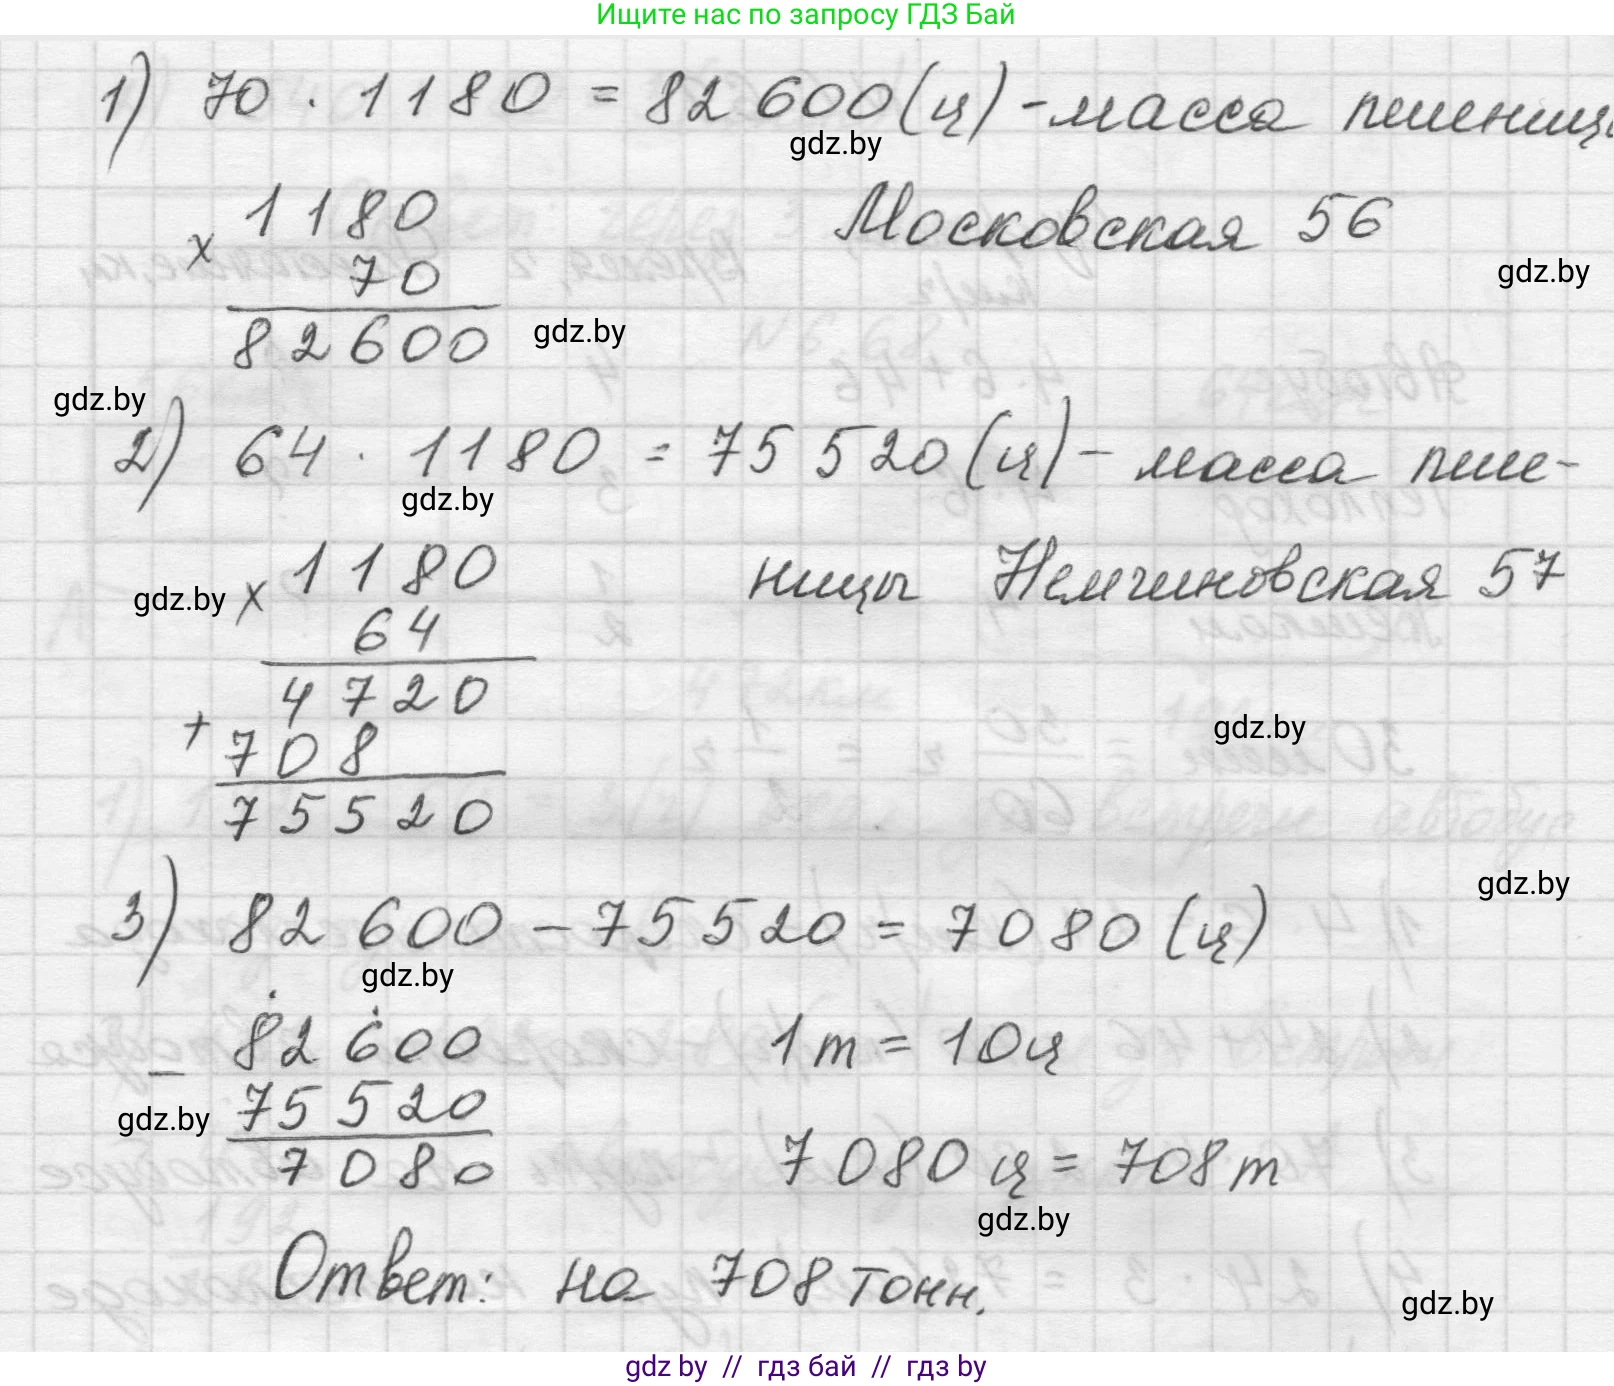 Ищите нас по запросу ГДЗ Бай
1) 70 · 1180 = 82 600 (ц) - масса пшениц
gdz.by
1180
Московская 56
х
70
gdz.by
82600
gdz.by
gdz.by
2) 64 · 1180 = 75 520 (ц) - масса пше-
gdz.by
1180
ницы Немчиновская 57
gdz.by х
64
4720
+
708
gdz.by
75520
gdz.by
3) 82 600 - 75 520 = 7080 (ц)
gdz.by
82600
1 т = 10 ц
-
gdz.by 75520
7080
7080 ц = 708 т
gdz.by
Ответ: на 708 тонн.
gdz.by
gdz by // гдз бай // гдз by